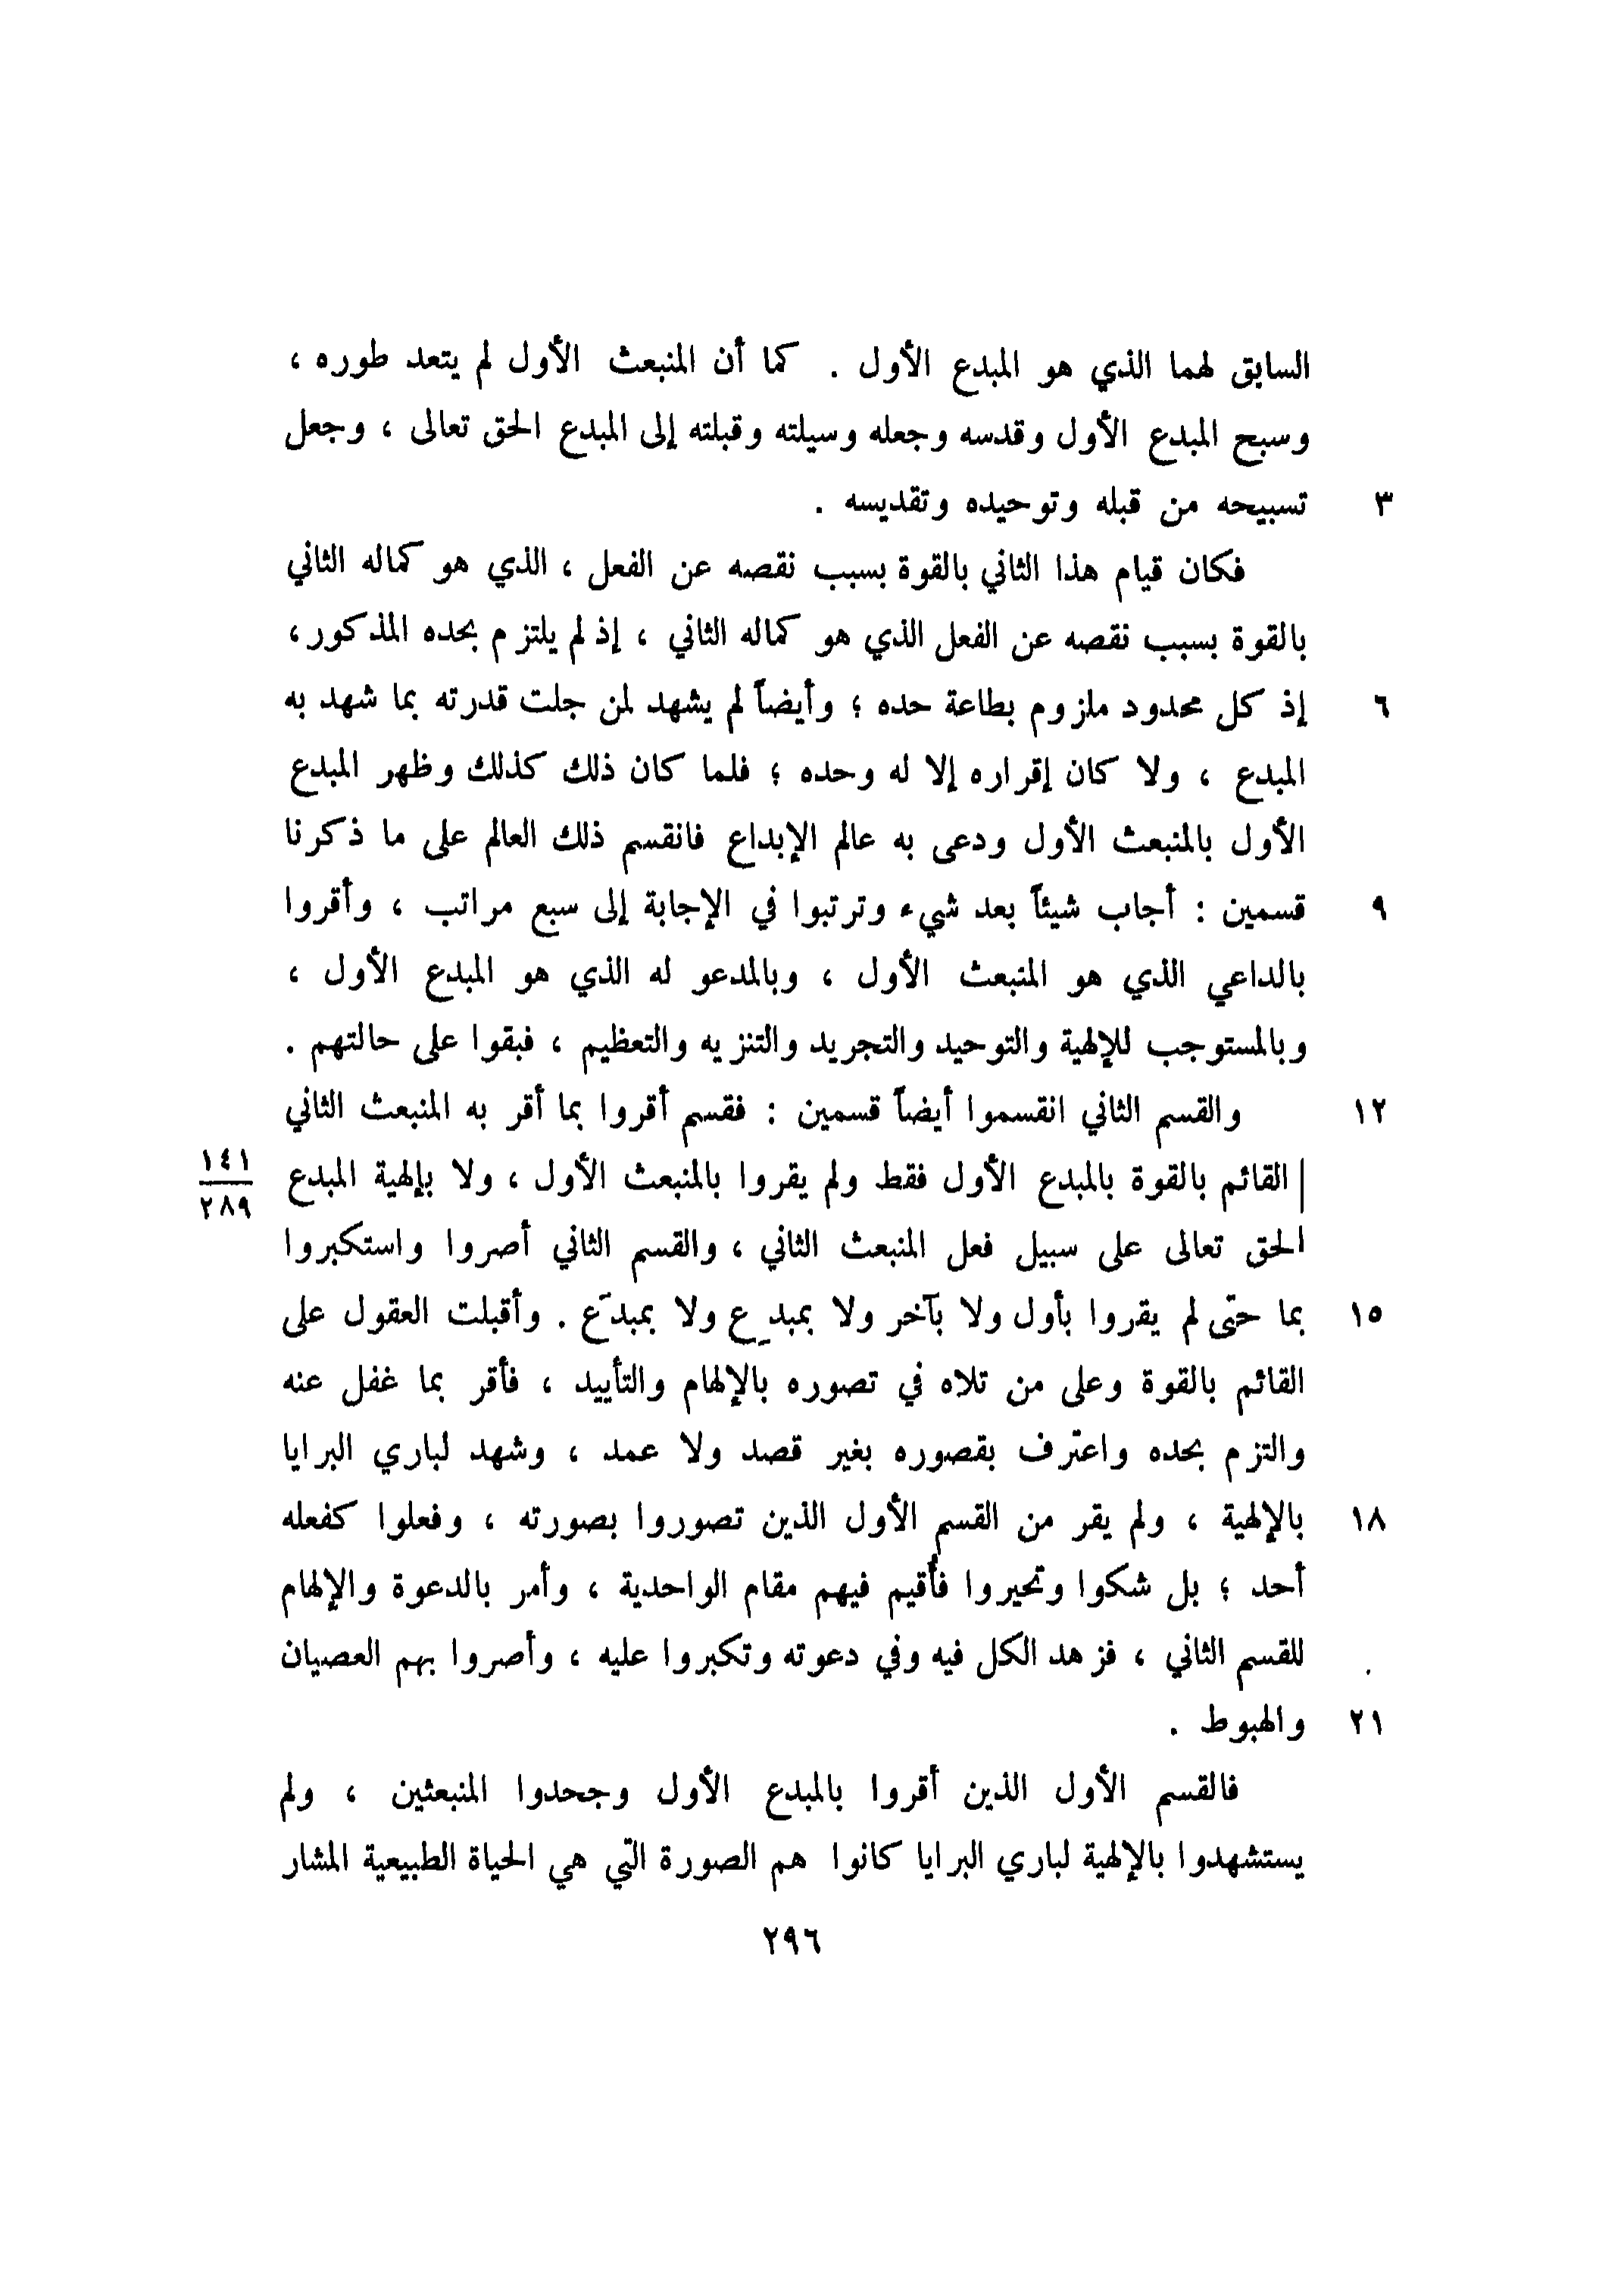 السابق لهما الذي هو المبدع الأول . كما أن المنبعث الأول لم يتعد طوره ،
وسبح المبدع الأول وقدسه وجعله وسيلته وقبلته إلى المبدع الحق تعالى ، وجعل
٣ تسبيحه من قبله وتوحيده وتقديسه .
فكان قيام هذا الثاني بالقوة بسبب نقصه عن الفعل ، الذي هو كماله الثاني
بالقوة بسبب نقصه عن الفعل الذي هو كماله الثاني ، إذ لم يلتزم بحده المذكور ،
٦ إذ كل محدود ملزوم بطاعة حده ؛ وأيضاً لم يشهد لمن جلت قدرته بما شهد به
المبدع ، ولا كان إقراره إلا له وحده ؛ فلما كان ذلك كذلك وظهر المبدع
الأول بالمنبعث الأول ودعى به عالم الإبداع فانقسم ذلك العالم على ما ذكرنا
٩ قسمين : أجاب شيئاً بعد شيء وترتبوا في الإجابة إلى سبع مراتب ، وأقروا
بالداعي الذي هو المنبعث الأول ، وبالمدعو له الذي هو المبدع الأول ،
وبالمستوجب للإلهية والتوحيد والتجريد والتنزيه والتعظيم ، فبقوا على حالتهم .
١٢ والقسم الثاني انقسموا أيضاً قسمين : فقسم أقروا بما أقر به المنبعث الثاني
| القائم بالقوة بالمبدع الأول فقط ولم يقروا بالمنبعث الأول ، ولا بإلهية المبدع
١٤١
٢٨٩
الحق تعالى على سبيل فعل المنبعث الثاني ، والقسم الثاني أصروا واستكبروا
١٥ بما حتى لم يقروا بأول ولا بآخر ولا بمبدِع ولا بمبدَع . وأقبلت العقول على
القائم بالقوة وعلى من تلاه في تصوره بالإلهام والتأييد ، فأقر بما غفل عنه
والتزم بحده واعترف بقصوره بغير قصد ولا عمد ، وشهد لباري البرايا
١٨ بالإلهية ، ولم يقر من القسم الأول الذين تصوروا بصورته ، وفعلوا كفعله
أحد ؛ بل شكوا وتحيروا فأقيم فيهم مقام الواحدية ، وأمر بالدعوة والإلهام
للقسم الثاني ، فزهد الكل فيه وفي دعوته وتكبروا عليه ، وأصروا بهم العصيان
٢١ والهبوط .
فالقسم الأول الذين أقروا بالمبدع الأول وجحدوا المنبعثين ، ولم
يستشهدوا بالإلهية لباري البرايا كانوا هم الصورة التي هي الحياة الطبيعية المشار
٢٩٦